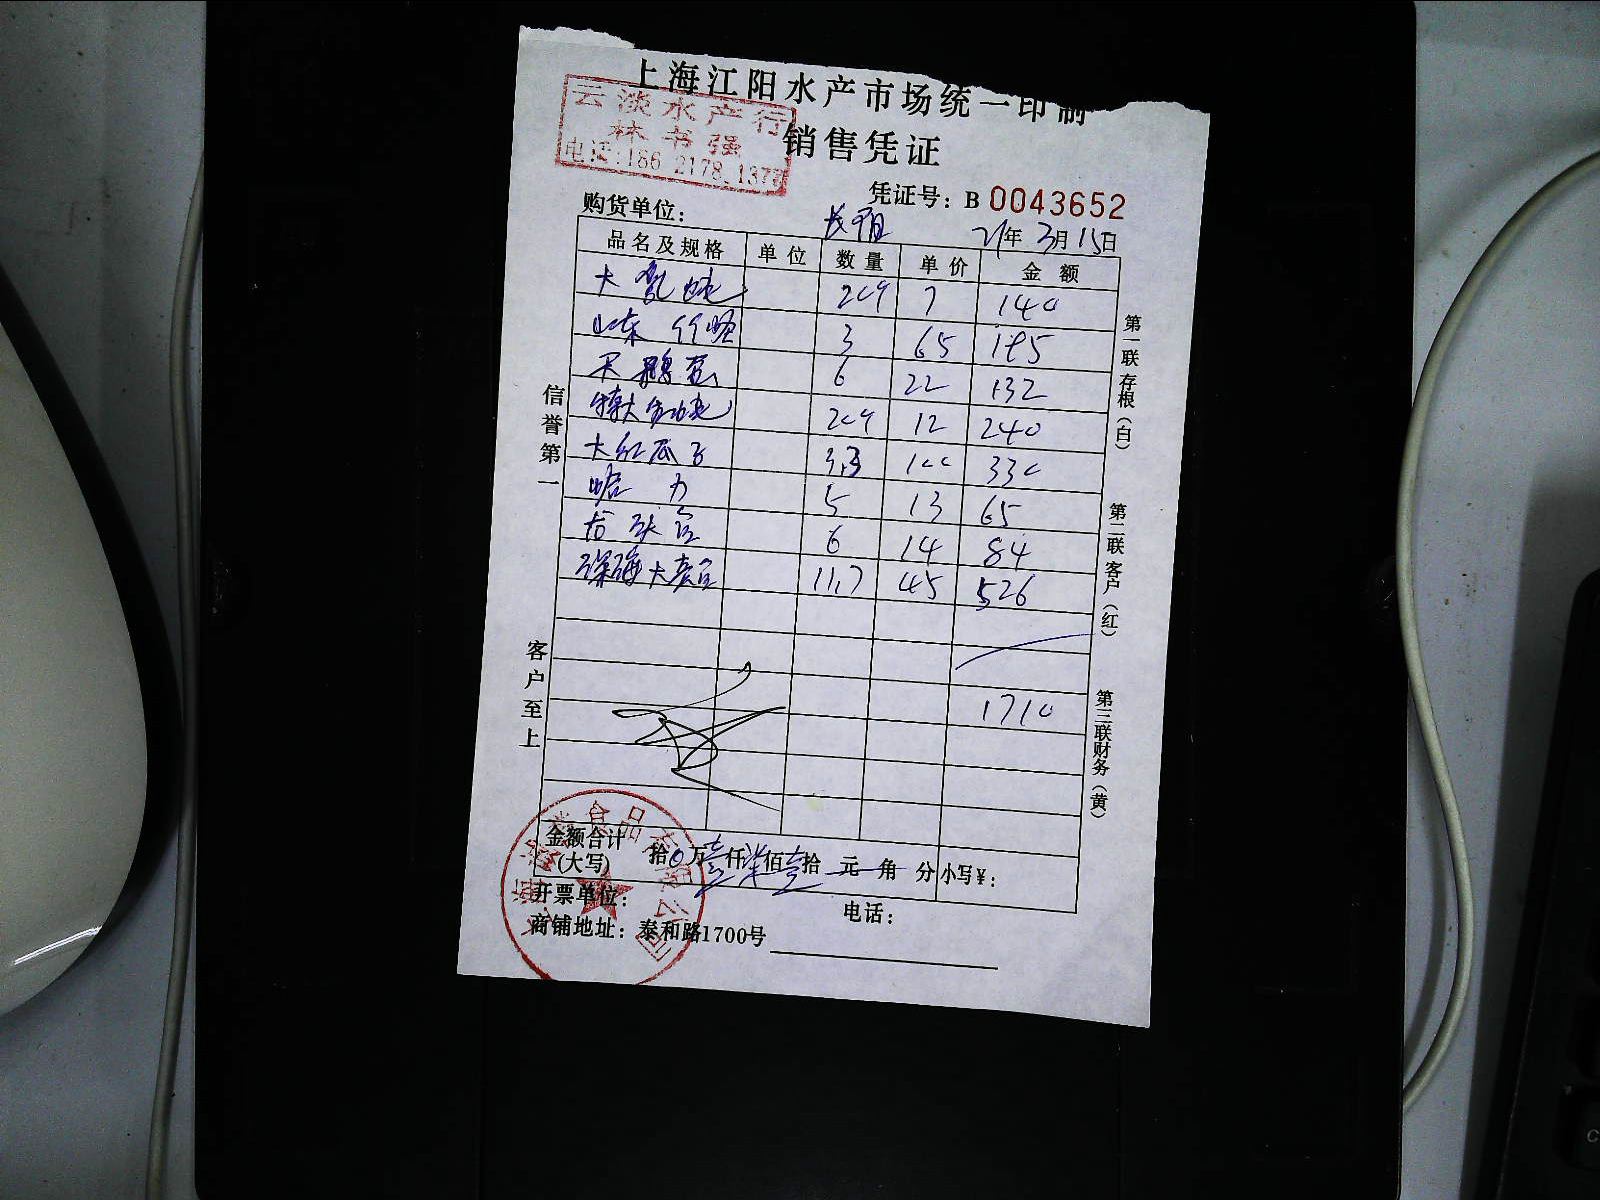 上海江阳水产市场统一印制
云淡水产行
林书强
电话:186 2178 137
销售凭证
凭证号：B 0043652
购货单位：
21年 3月 15日
品名及规格 单位 数量 单价 金额
7 140
山东 3 65 195
6 22 132
特大 12 240
大红瓜子 3.3 100 330
5 13 65
龙头 6 14 84
深海大 11.7 45 526
1710
金额合计(大写) 拾0万壹仟柒佰壹拾 元 角 分 小写¥：
开票单位：
电话：
商铺地址：泰和路1700号
信誉第一
客户至上
第一联存根（白）
第二联客户（红）
第三联财务（黄）
食品有限公司